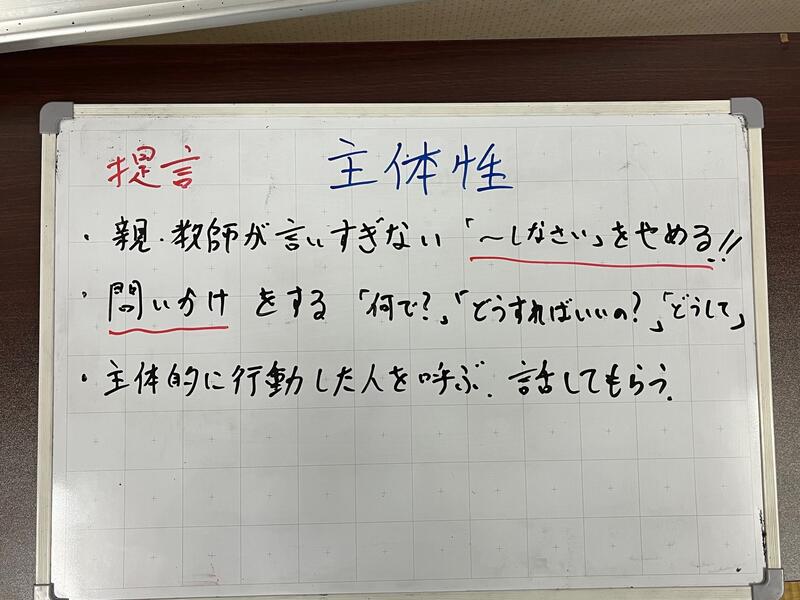 提言 主体性
・親・教師が言いすぎない「～しなさい」をやめる!!
・問いかけをする「何で?」「どうすればいいの?」「どうして」
・主体的に行動した人を呼ぶ. 話してもらう.